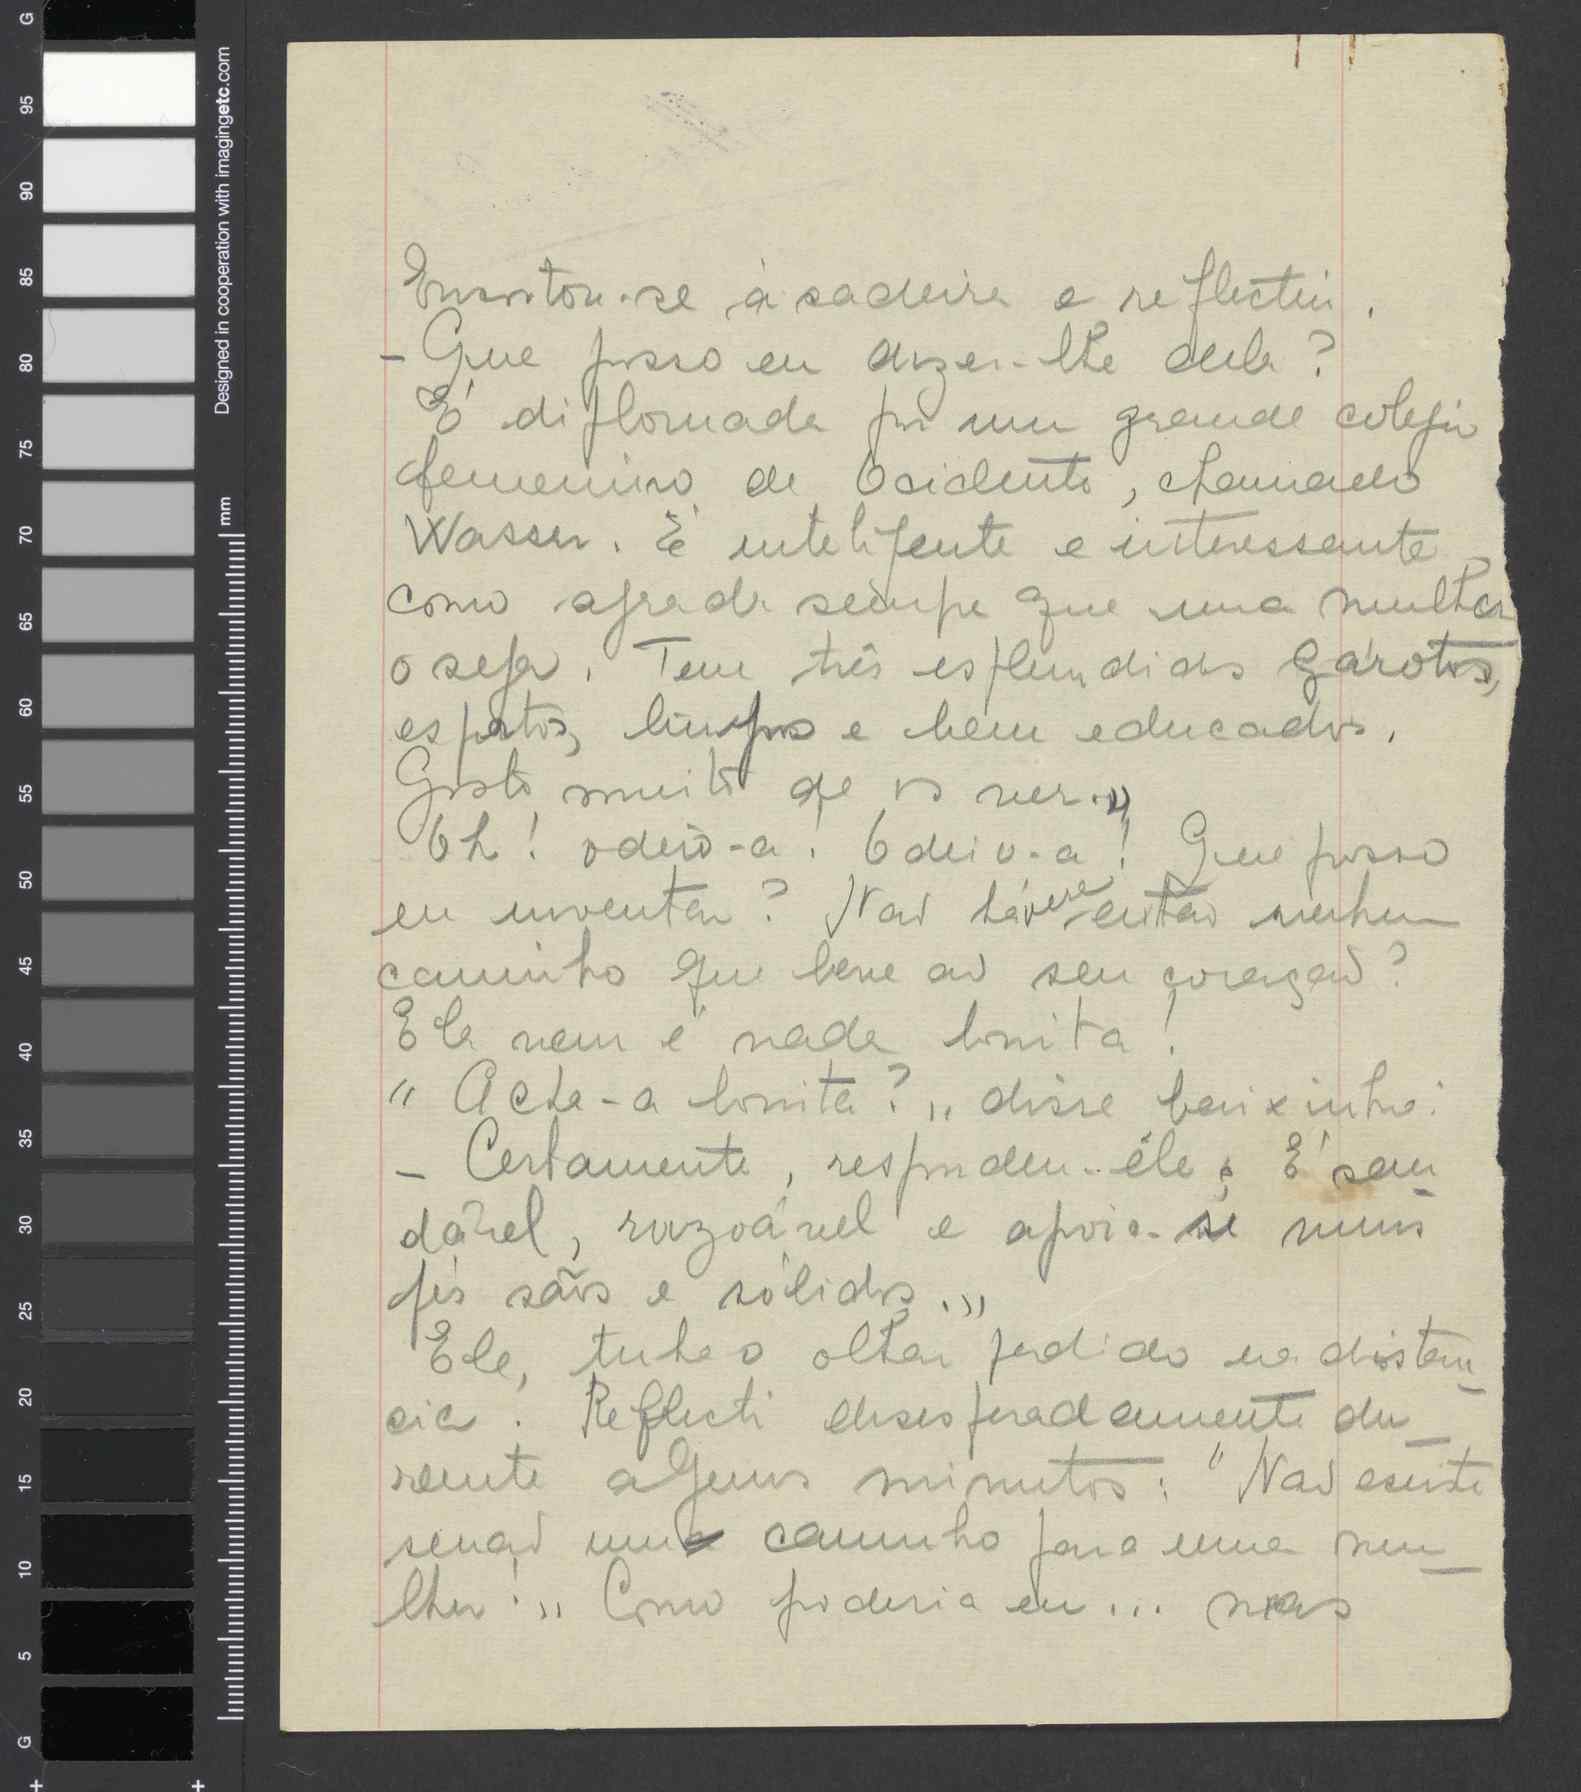 Encostou-se à cadeira e reflectiu.
- Que posso eu dizer-lhe dela?
É diplomada por um grande colegio
femenino do Ocidente, chamado
Wasser. É inteligente e interessante
como agrada sempre que uma mulher
o seja. Tem três esplendidos garotos,
espertos, limpos e bem educados.
Gosto muito de os ver.„
Oh! odeio-a! Odeio-a! Que posso
eu inventar? Não havera então nenhum
caminho que leve ao seu coração?
Ela nem é nada bonita!
“ Acha-a bonita? „ disse baixinho.
- Certamente, respondeu-êle; É sau
dável, razoável e apoia-se nuns
pés sãos e sólidos.„
Ele, tinha o olhar perdido na distan
cia. Reflecti desesperadamente du
rante alguns minutos: “ Não existe
senão um caminho para uma mu
lher! „ Como poderia eu ... mas
G
95
90
85
80
75
70
65
60
55
50
45
40
35
30
25
20
15
10
5
G
Designed in cooperation with imagingetc.com
mm